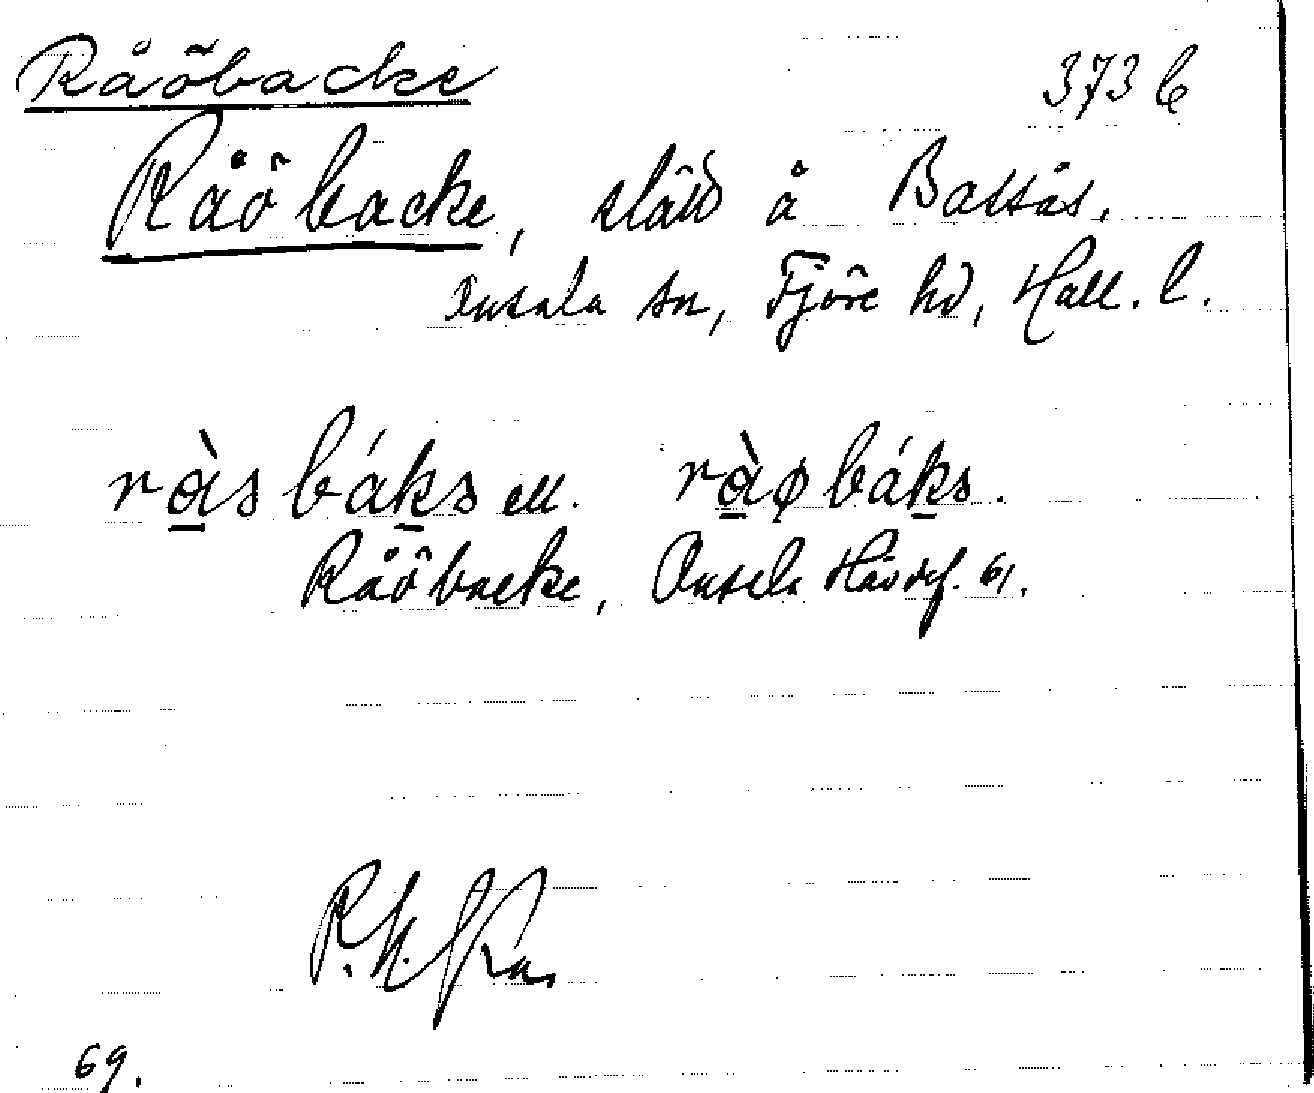 Råöbacke 373 b
Råöbacke, slätt å Bassås.
Onsala sn, Fjäre hd, Hall. l.
ràsbáks ell. ràøbáks.
Råöbacke, Onsala Hävdsf. 61.
69.